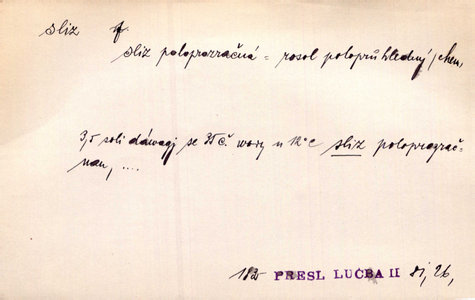 sliz f.
sliz poloprozračná = rosol poloprůhledný, chem,
3,5 soli dáwagj se 35 č. wody u 12°C sliz poloprozrač-
nau, ....
182 PRESL LUČBA II 26,